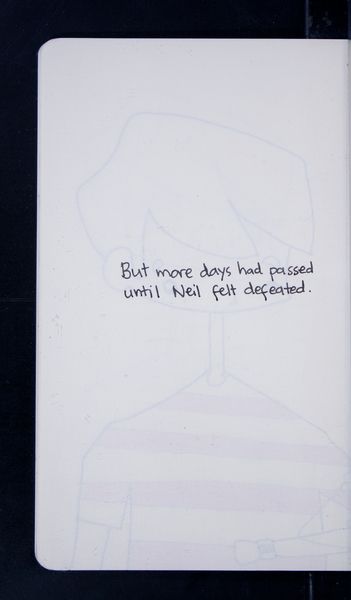 But more days had passed
until Neil felt defeated.